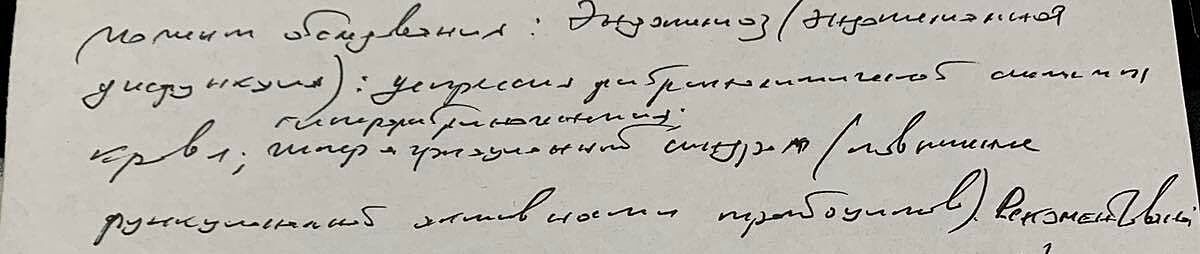 момент обследования: Эндотелиоз (эндотелиальная
дисфункция): депрессия фибринолитической системы
гиперфибриногенемия;
крови; гиперагрегационный синдром (повышение
функциональной активности тромбоцитов). Рекомендовано